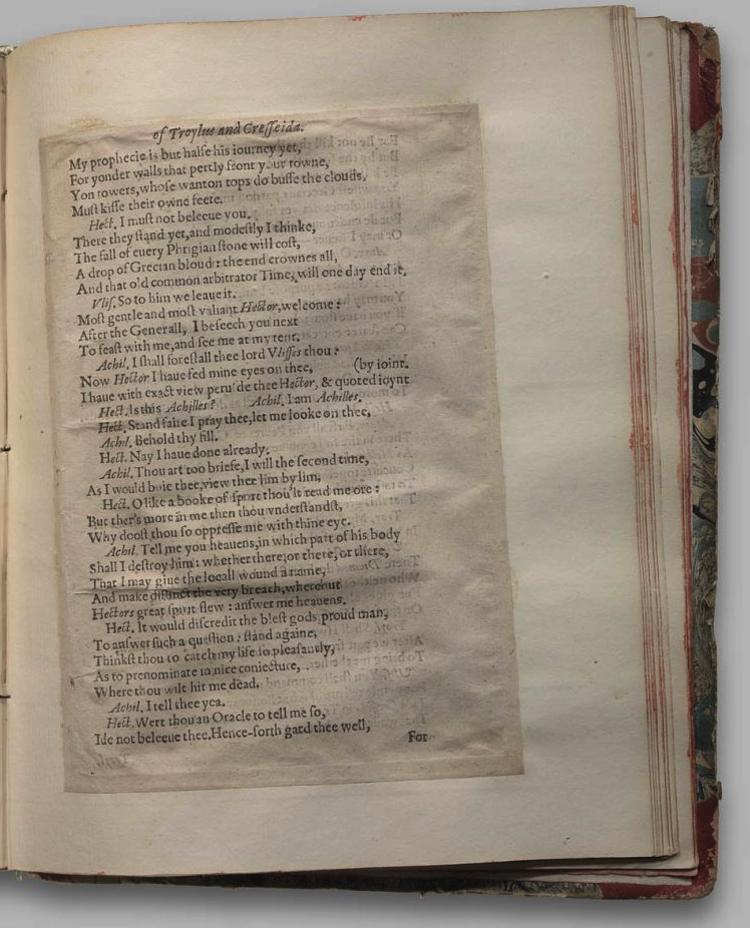 of Troylus and Cresseida.
My prophecie is but halfe his iourney yet,
For yonder walls that pertly front your towne,
Yon towers, whose wanton tops do busse the clouds,
Must kisse their owne feete.
Hect. I must not beleeue you.
There they stand yet, and modestly I thinke,
The fall of euery Phrigian stone will cost,
A drop of Grecian bloud: the end crownes all,
And that old common arbitrator Time, will one day end it.
Vlis. So to him we leaue it.
Most gentle and most valiant Hector, welcome:
After the Generall, I beseech you next
To feast with me, and see me at my tent.
Achil. I shall forestall thee lord Vlisses thou:
Now Hector I haue fed mine eyes on thee, (by ioint.
I haue with exact view peru'de thee Hector, & quoted ioynt
Hect. Is this Achilles? Achil. I am Achilles.
Hect. Stand faire I pray thee, let me looke on thee,
Achil. Behold thy fill.
Hect. Nay I haue done already.
Achil. Thou art too briefe, I will the second time,
As I would buie thee, view thee lim by lim,
Hect. O like a booke of sport thou'lt read me ore:
But ther's more in me then thou vnderstandst,
Why doost thou so oppresse me with thine eye.
Achil. Tell me you heauens, in which part of his body
Shall I destroy him: whether there, or there, or there,
That I may giue the locall wound a name,
And make distinct the very breach, whereout
Hectors great spirit flew: answer me heauens.
Hect. It would discredit the blest gods, proud man,
To answer such a question: stand againe,
Thinkst thou to catch my life so pleasantly,
As to prenominate in nice coniecture,
Where thou wilt hit me dead.
Achil. I tell thee yea.
Hect. Wert thou an Oracle to tell me so,
Ide not beleeue thee. Hence-forth gard thee well,
For